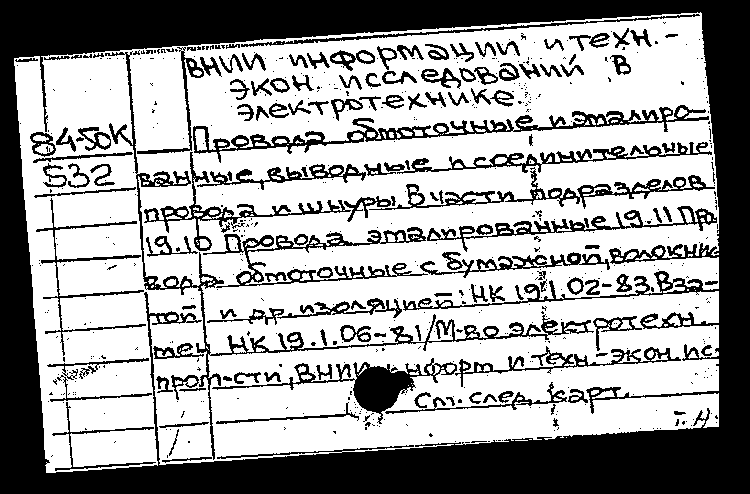 ВНИИ информации и техн.-
экон. исследований в
электротехнике.
84-50К Провода обмоточные и эмалиро-
532 ванные, выводные и соединительные
провода и шнуры. В части подразделов
19.10 Провода эмалированные 19.11 Про
вода обмоточные с бумажной, волокнис
той и др. изоляцией: НК 19.1.02-83. Вза-
мен НК 19.1.06-81/М-во электротехн.
пром-сти, ВНИИ информ и техн.-экон. ис-
См. след. карт.
Т. Н.